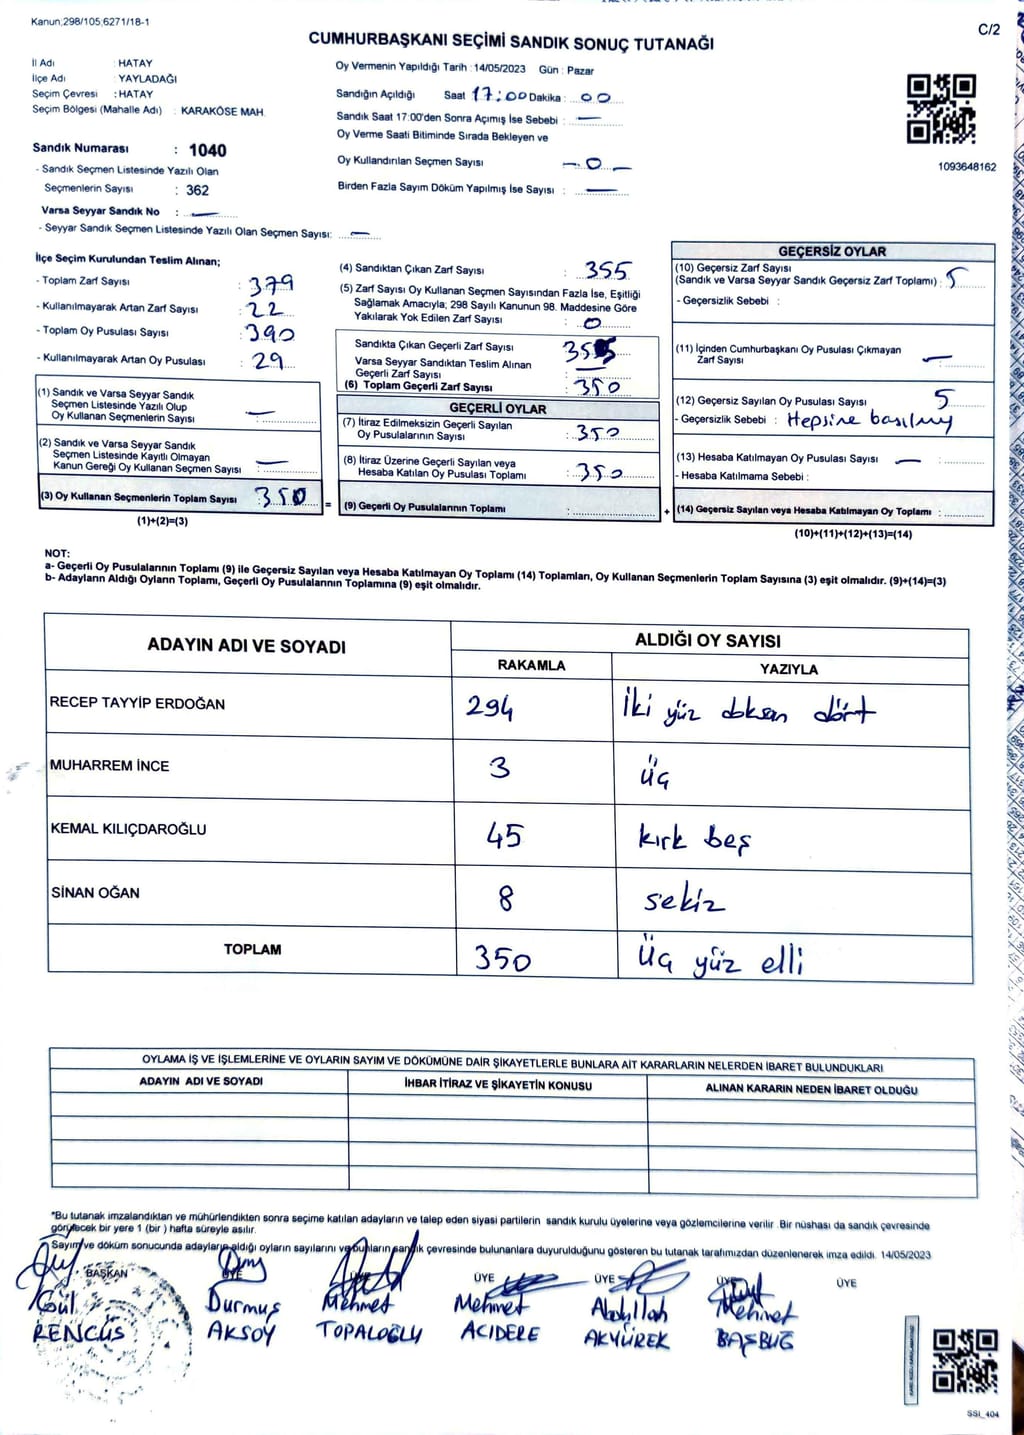 Kanun,298/105,6271/18-1
C/2
CUMHURBAŞKANI SEÇİMİ SANDIK SONUÇ TUTANAĞI
İl Adı : HATAY
İlçe Adı : YAYLADAĞI
Seçim Çevresi : HATAY
Seçim Bölgesi (Mahalle Adı) : KARAKÖSE MAH.
Sandık Numarası : 1040
- Sandık Seçmen Listesinde Yazılı Olan
Seçmenlerin Sayısı : 362
Varsa Seyyar Sandık No : —
- Seyyar Sandık Seçmen Listesinde Yazılı Olan Seçmen Sayısı: —
Oy Vermenin Yapıldığı Tarih : 14/05/2023 Gün : Pazar
Sandığın Açıldığı Saat 17:00 Dakika : 00
Sandık Saat 17:00'den Sonra Açımış İse Sebebi : —
Oy Verme Saati Bitiminde Sırada Bekleyen ve
Oy Kullandırılan Seçmen Sayısı — 0 —
Birden Fazla Sayım Döküm Yapılmış İse Sayısı : —
1093648162
İlçe Seçim Kurulundan Teslim Alınan;
- Toplam Zarf Sayısı : 379
- Kullanılmayarak Artan Zarf Sayısı : 22
- Toplam Oy Pusulası Sayısı : 390
- Kullanılmayarak Artan Oy Pusulası : 29
(1) Sandık ve Varsa Seyyar Sandık
Seçmen Listesinde Yazılı Olup
Oy Kullanan Seçmenlerin Sayısı : —
(2) Sandık ve Varsa Seyyar Sandık
Seçmen Listesinde Kayıtlı Olmayan
Kanun Gereği Oy Kullanan Seçmen Sayısı : —
(3) Oy Kullanan Seçmenlerin Toplam Sayısı : 350
(1)+(2)=(3)
(4) Sandıktan Çıkan Zarf Sayısı : 355
(5) Zarf Sayısı Oy Kullanan Seçmen Sayısından Fazla İse, Eşitliği
Sağlamak Amacıyla; 298 Sayılı Kanunun 98. Maddesine Göre
Yakılarak Yok Edilen Zarf Sayısı : 0
Sandıkta Çıkan Geçerli Zarf Sayısı 355
Varsa Seyyar Sandıktan Teslim Alınan
Geçerli Zarf Sayısı : —
(6) Toplam Geçerli Zarf Sayısı : 350
GEÇERLİ OYLAR
(7) İtiraz Edilmeksizin Geçerli Sayılan
Oy Pusulalarının Sayısı : 350
(8) İtiraz Üzerine Geçerli Sayılan veya
Hesaba Katılan Oy Pusulası Toplamı : 350
= (9) Geçerli Oy Pusulalarının Toplamı :
GEÇERSİZ OYLAR
(10) Geçersiz Zarf Sayısı
(Sandık ve Varsa Seyyar Sandık Geçersiz Zarf Toplamı) : 5
- Geçersizlik Sebebi :
(11) İçinden Cumhurbaşkanı Oy Pusulası Çıkmayan
Zarf Sayısı : —
(12) Geçersiz Sayılan Oy Pusulası Sayısı 5
- Geçersizlik Sebebi : Hepsine basılmış
(13) Hesaba Katılmayan Oy Pusulası Sayısı : —
- Hesaba Katılmama Sebebi :
+ (14) Geçersiz Sayılan veya Hesaba Katılmayan Oy Toplamı :
(10)+(11)+(12)+(13)=(14)
NOT:
a- Geçerli Oy Pusulalarının Toplamı (9) ile Geçersiz Sayılan veya Hesaba Katılmayan Oy Toplamı (14) Toplamları, Oy Kullanan Seçmenlerin Toplam Sayısına (3) eşit olmalıdır. (9)+(14)=(3)
b- Adayların Aldığı Oyların Toplamı, Geçerli Oy Pusulalarının Toplamına (9) eşit olmalıdır.
ADAYIN ADI VE SOYADI ALDIĞI OY SAYISI
RAKAMLA YAZIYLA
RECEP TAYYİP ERDOĞAN 294 İki yüz doksan dört
MUHARREM İNCE 3 üç
KEMAL KILIÇDAROĞLU 45 kırk beş
SİNAN OĞAN 8 sekiz
TOPLAM 350 Üç yüz elli
OYLAMA İŞ VE İŞLEMLERİNE VE OYLARIN SAYIM VE DÖKÜMÜNE DAİR ŞİKAYETLERLE BUNLARA AİT KARARLARIN NELERDEN İBARET BULUNDUKLARI
ADAYIN ADI VE SOYADI İHBAR İTİRAZ VE ŞİKAYETİN KONUSU ALINAN KARARIN NEDEN İBARET OLDUĞU
*Bu tutanak imzalandıktan ve mühürlendikten sonra seçime katılan adayların ve talep eden siyasi partilerin sandık kurulu üyelerine veya gözlemcilerine verilir. Bir nüshası da sandık çevresinde
görülecek bir yere 1 (bir ) hafta süreyle asılır.
Sayım ve döküm sonucunda adayların aldığı oyların sayılarını ve bunların sandık çevresinde bulunanlara duyurulduğunu gösteren bu tutanak tarafımızdan düzenlenerek imza edildi. 14/05/2023
BAŞKAN ÜYE ÜYE ÜYE ÜYE ÜYE ÜYE
Gül Durmuş Mehmet Mehmet Abdullah Mehmet
RENCÜS AKSOY TOPALOĞLU ACIDERE AKYÜREK BAŞBUĞ
SSI_404